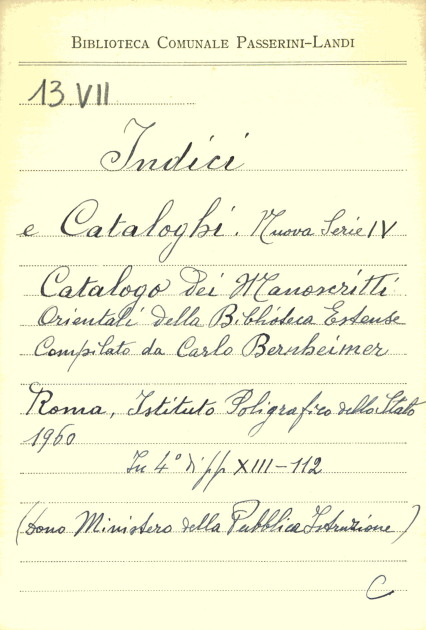 BIBLIOTECA COMUNALE PASSERINI-LANDI
13 VII
Indici
e Cataloghi. Nuova Serie IV
Catalogo dei Manoscritti
Orientali della Biblioteca Estense
Compilato da Carlo Bernheimer
Roma, Istituto Poligrafico dello Stato
1960
In 4° di pp XIII-112
(dono Ministero della Pubblica Istruzione)
C